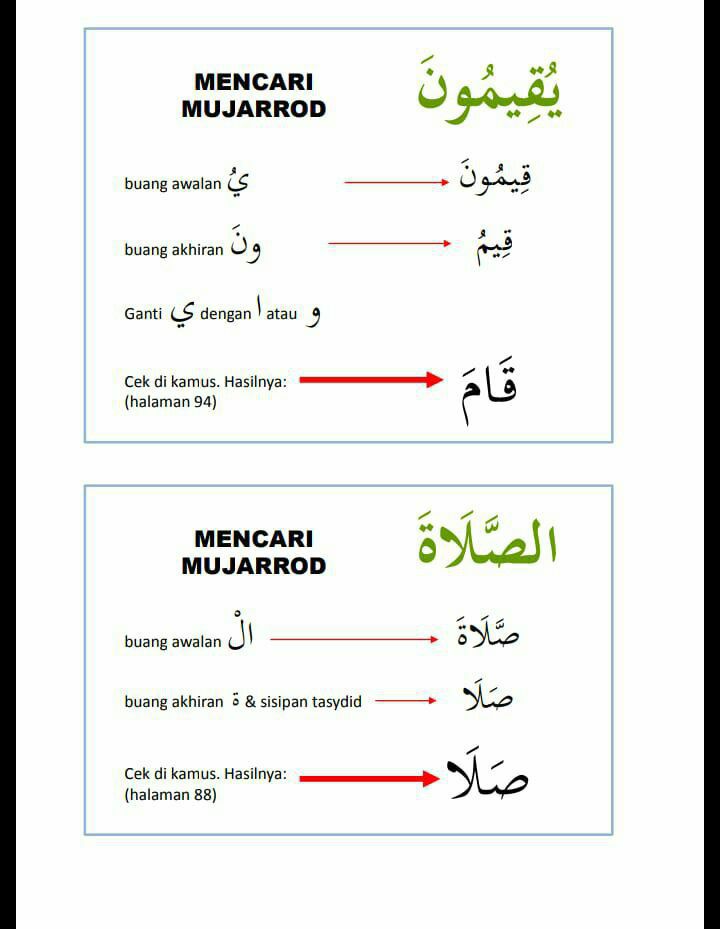 MENCARI
MUJARROD
يُقِيمُونَ
buang awalan يُ
قِيمُونَ
buang akhiran ونَ
قِيمُ
Ganti ي dengan ا atau و
Cek di kamus. Hasilnya:
(halaman 94)
قَامَ
MENCARI
MUJARROD
الصَّلَاةَ
buang awalan الْ
صَّلَاةَ
buang akhiran ة & sisipan tasydid
صَلَا
Cek di kamus. Hasilnya:
(halaman 88)
صَلَا